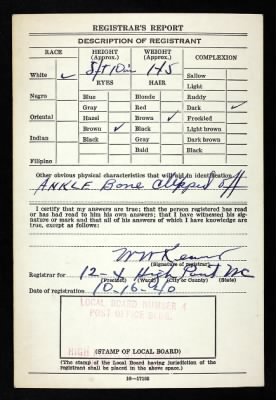 REGISTRAR'S REPORT
DESCRIPTION OF REGISTRANT
RACE HEIGHT (Approx.) WEIGHT (Approx.) COMPLEXION
White ✓ 5 ft 10 in 145 Sallow
EYES HAIR Light
Negro Blue Blonde Ruddy
Gray Red Dark ✓
Oriental Hazel Brown ✓ Freckled
Brown ✓ Black Light brown
Indian Black Gray Dark brown
Bald Black
Filipino
Other obvious physical characteristics that will aid in identification
ANKLE Bone Clipped off
I certify that my answers are true; that the person registered has read
or has had read to him his own answers; that I have witnessed his signa-
ture or mark and that all of his answers of which I have knowledge are
true, except as follows:
W W
(Signature of registrar)
Registrar for 12- High Point NC
(Precinct) (Ward) (City or County) (State)
Date of registration 10-16-40
LOCAL BOARD NUMBER 4
POST OFFICE BLDG.
HIGH (STAMP OF LOCAL BOARD)
(The stamp of the Local Board having jurisdiction of the
registrant shall be placed in the above space.)